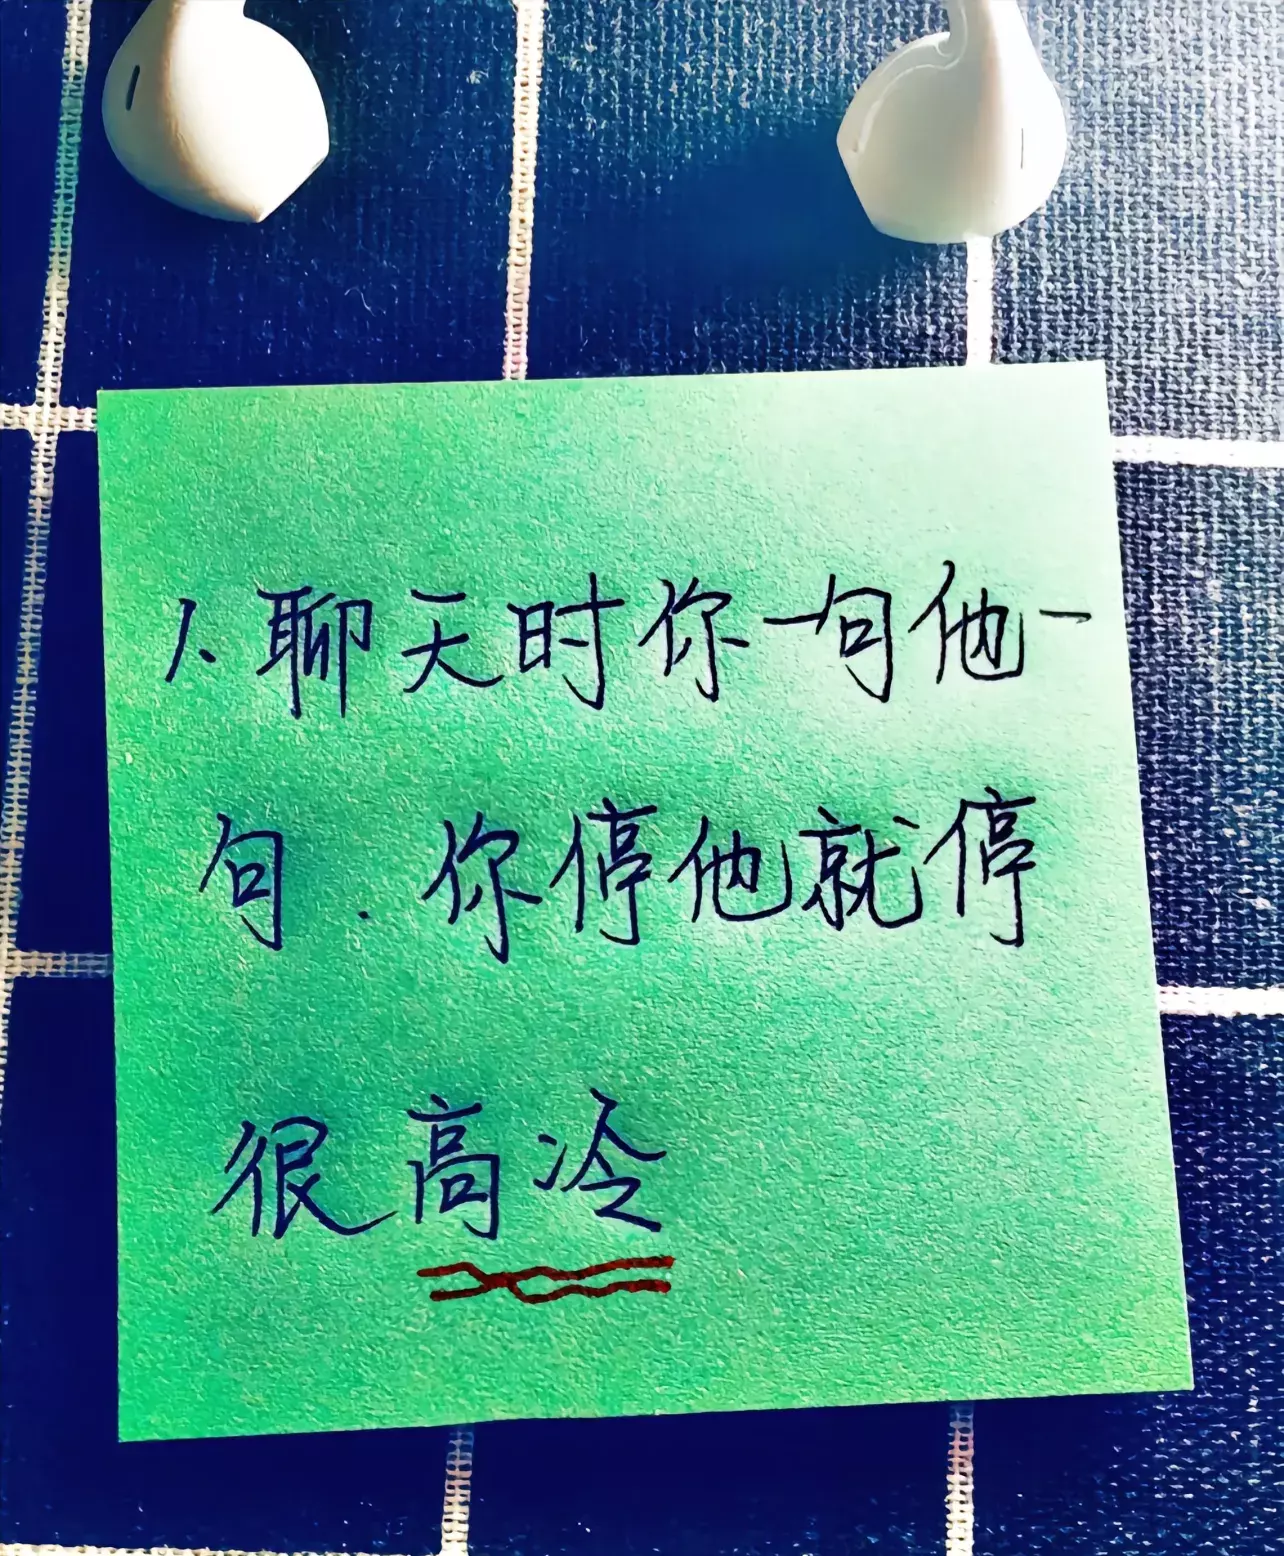 1、聊天时你一句他一
句.你停他就停
很高冷